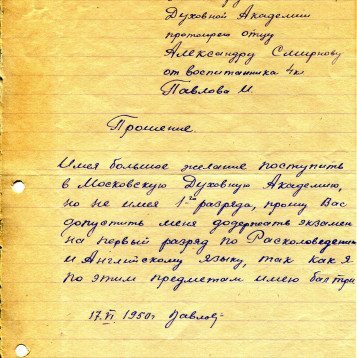 Духовной Академии
протоиерею отцу
Александру Смирнову
от воспитанника 4 кл
Павлова И.
Прошение.
Имея большое желание поступить
в Московскую Духовную Академию,
но не имея 1-го разряда, прошу Вас
допустить меня додержать экзамен
на первый разряд по Расколоведению
и Английскому языку, так как я
по этим предметам имею бал три
17.VI 1950г Павлов